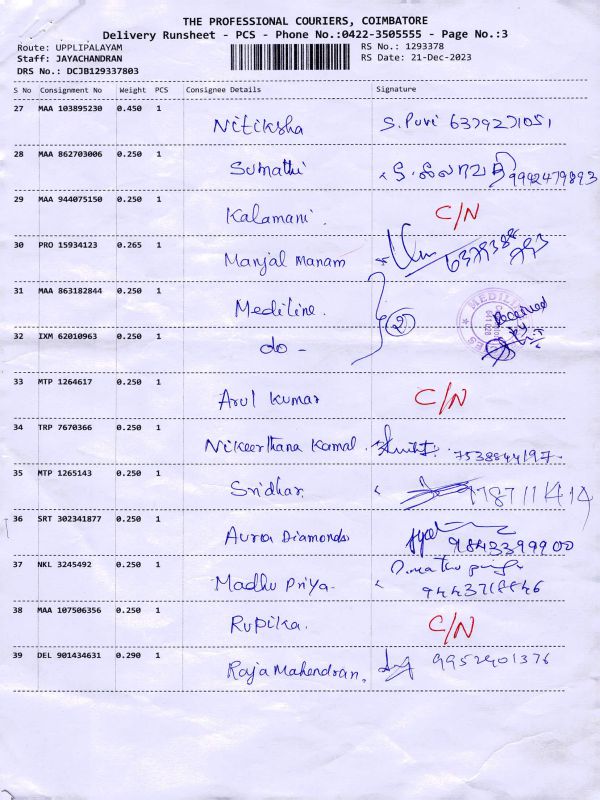 THE PROFESSIONAL COURIERS, COIMBATORE
Delivery Runsheet - PCS - Phone No.:0422-3505555 - Page No.:3
Route: UPPLIPALAYAM RS No.: 1293378
Staff: JAYACHANDRAN RS Date: 21-Dec-2023
DRS No.: DCJB129337803
S No Consignment No Weight PCS Consignee Details Signature
27 MAA 103895230 0.450 1 Nitiksha S. Puvi 6379271051
28 MAA 862703006 0.250 1 Sumathi 9942479893
29 MAA 944075150 0.250 1 Kalamani. C/N
30 PRO 15934123 0.265 1 Manjal Manam
31 MAA 863182844 0.250 1 Mediline. 2 Received by
32 IXM 62010963 0.250 1 do -
33 MTP 1264617 0.250 1 Arul Kumar C/N
34 TRP 7670366 0.250 1 Nikeerthana Kamal. 7538844197
35 MTP 1265143 0.250 1 Sridhar. 9787111414
36 SRT 302341877 0.250 1 Aurra Diamonds 9843399900
37 NKL 3245492 0.250 1 Madhu Priya. 9443718846
38 MAA 107506356 0.250 1 Rupika. C/N
39 DEL 901434631 0.290 1 Raja Mahendran. 9952901376